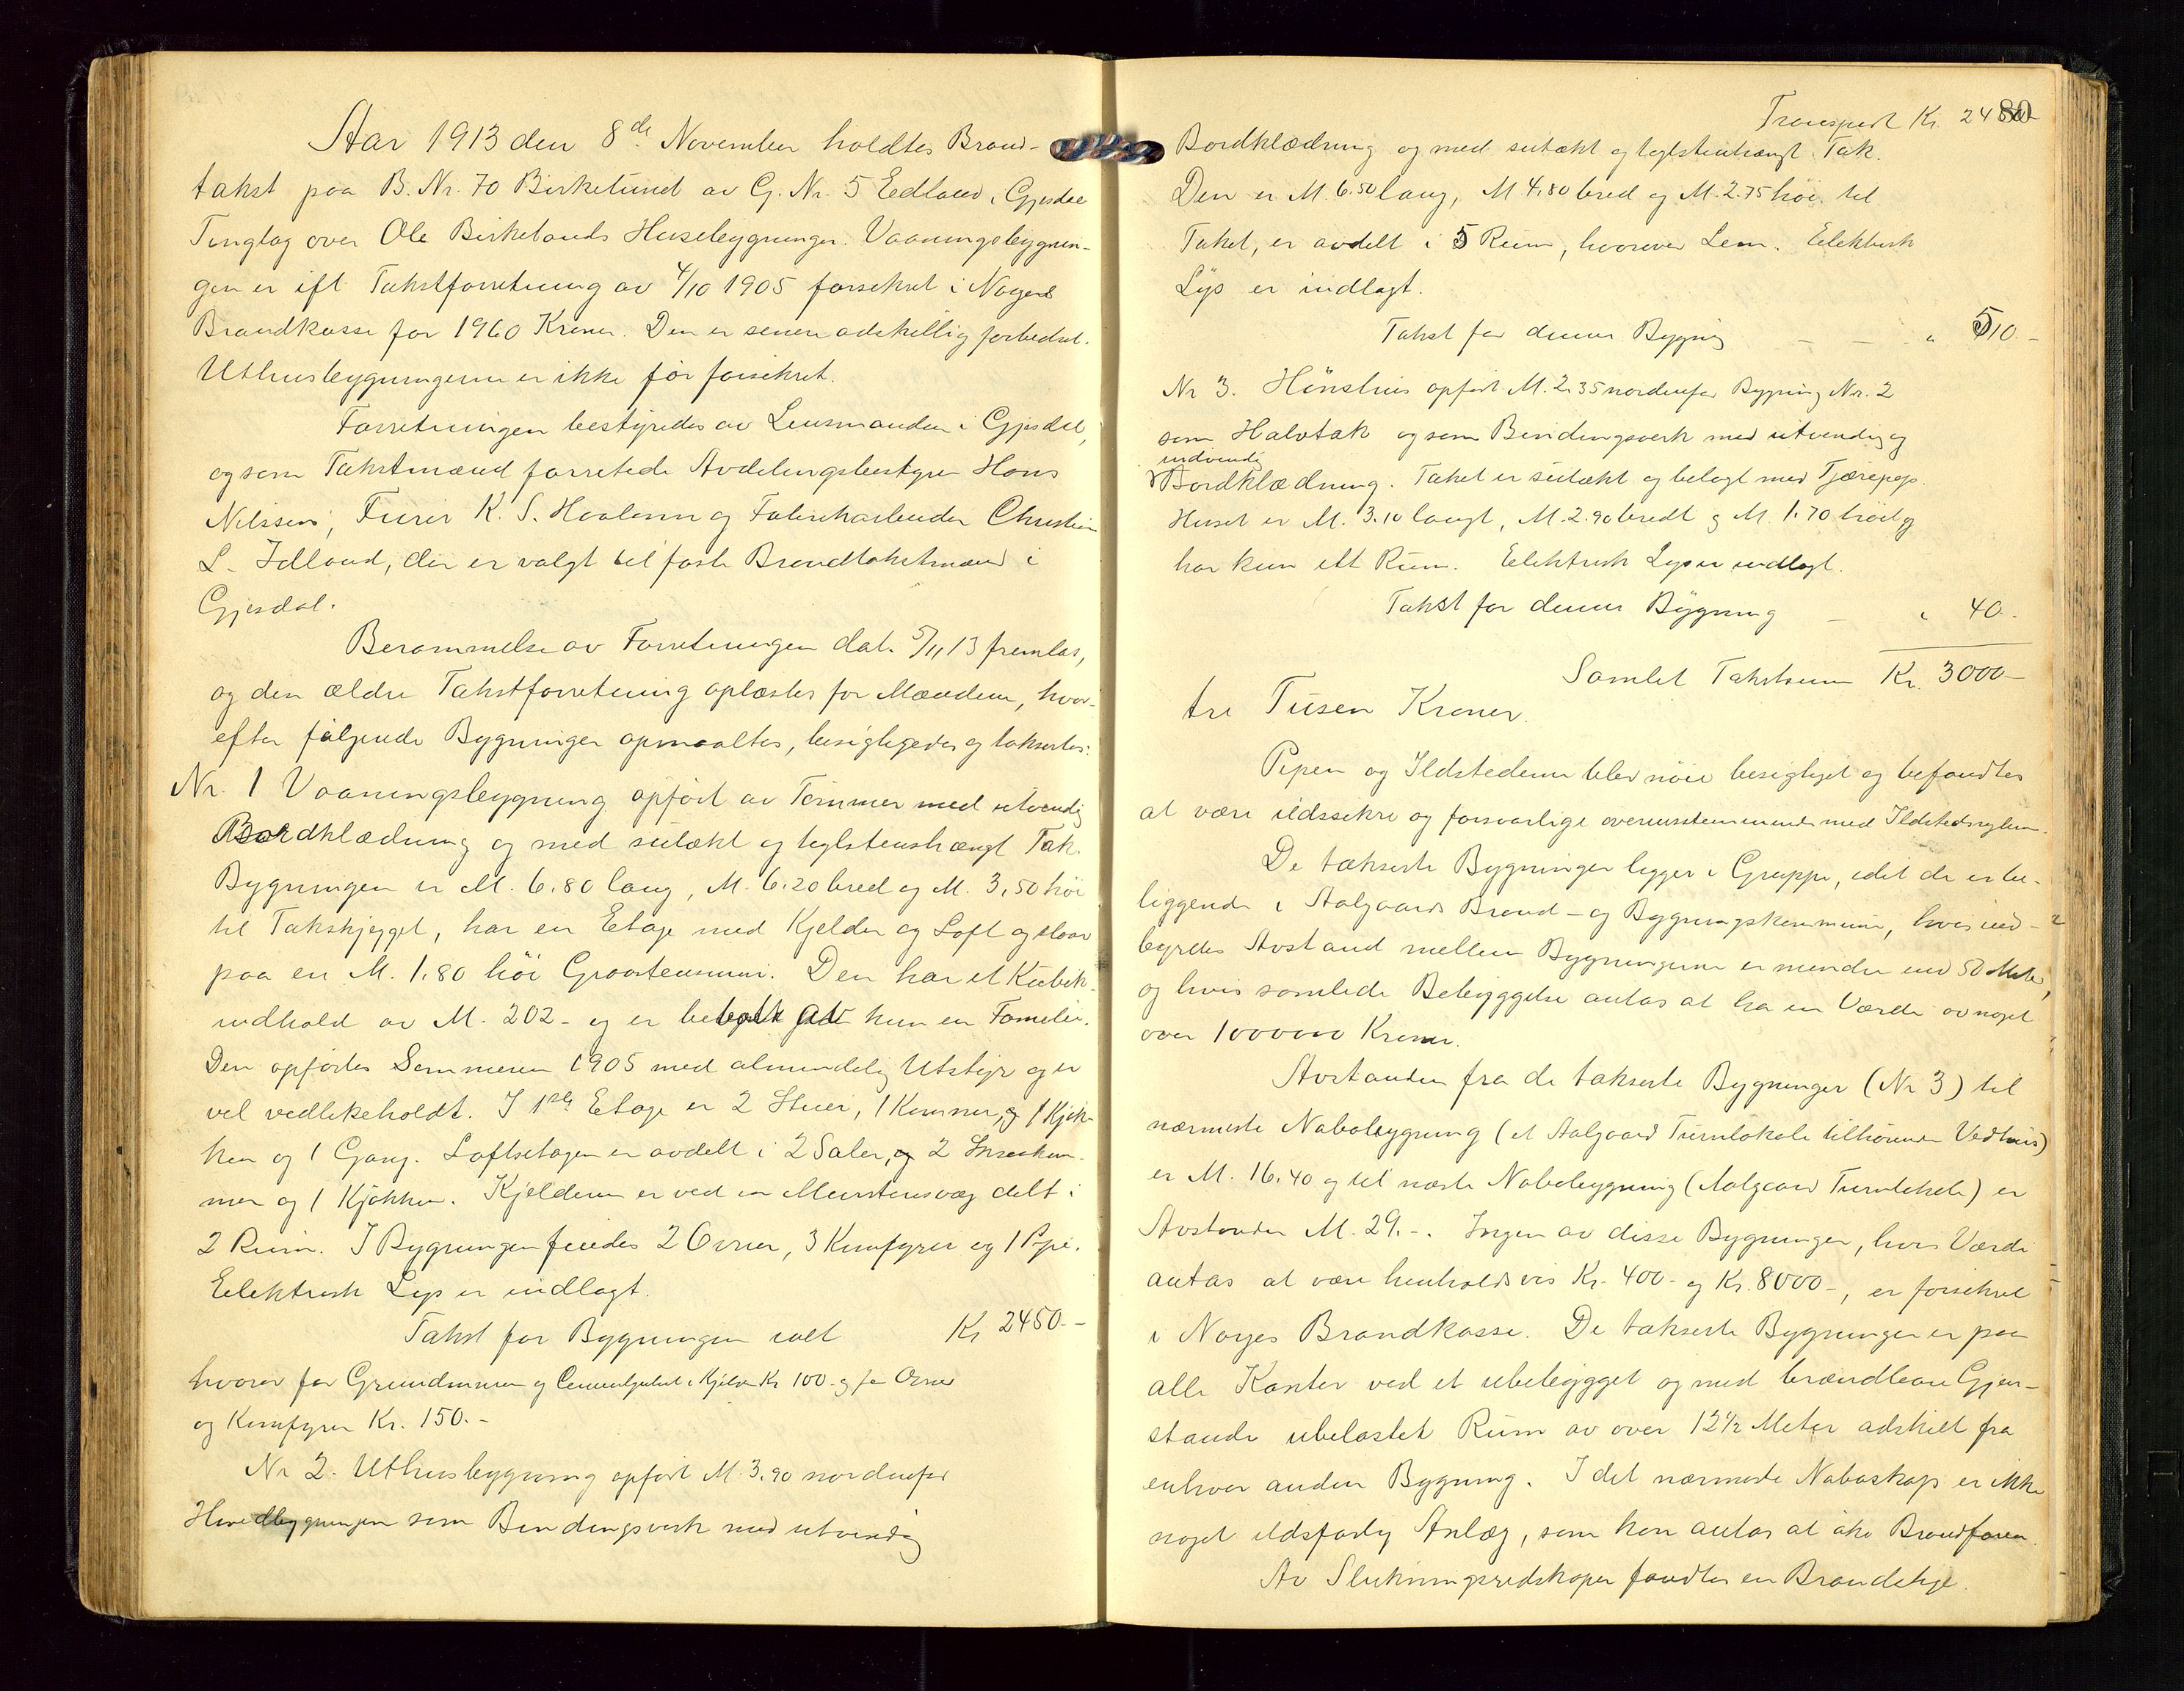 Aar 1913 den 8de November holdtes Brand-
takst paa B. Nr. 70 Birkelund av G. Nr. 5 Edland i Gjesdal
Tinglag over Ole Birkelands Husebygninger. Vaaningsbygnin-
gen er ifl. Takstforretning av 4/10 1905 forsekret i Norges
Brandkasse for 1960 Kroner. Den er senere adskillig forbedret.
Uthusbygningerne er ikke før forsekret.
Forretningen bestyredes av Lensmanden i Gjesdal,
og som Takstmænd forrettede Avdelingsbestyrer Hans
Nilssen, Furer K. S. Haaland og Fabrikarbeider Christian
L. Idland, der er valgt til faste Brandtakstmænd i
Gjesdal.
Berammelse av Forretningen dat. 5/11 13 fremlas,
og den ældre Takstforretning oplæstes for Mændene, hvor-
efter følgende Bygninger opmaaltes, besigtigedes og takstertes:
Nr. 1 Vaaningsbygning opført av Tømmer med utvendig
Bordklædning og med sutækt og teglstenshængt Tak.
Bygningen er M. 6.80 lang, M. 6.20 bred og M. 3,50 høi
til Takskjegget, har en Etage med Kjelder og Loft og staar
paa en M. 1.80 høi Graastensmur. Den har et Kubik-
indhold av M. 202 - og er bebodd av kun en Familie.
Den opførtes Sommeren 1905 med almindelig Utstyr og er
vel vedlikeholdt. I 1ste Etage er 2 Stuer, 1 Kammer, og 1 Kjøk-
ken og 1 Gang. Loftsetagen er avdelt i 2 Saler, og 2 Smaakam-
mer og 1 Kjøkken. Kjelderen er ved en Murstensvæg delt i
2 Rum. I Bygningen findes 2 Ovner, 3 Komfyrer og 1 Pipe.
Elektrisk Lys er indlagt.
Takst for Bygningen ialt Kr 2450.-
hvorav for Grundmuren og Cementgulvet i Kjelder Kr 100 - og for Ovner
og Komfyrer Kr. 150.-
Nr 2. Uthusbygning opført M. 3.90 nordenfor
Hovedbygningen som Bindingsverk med utvendig
Transport Kr. 2450
80
Bordklædning og med sutækt og teglstenhængt Tak.
Den er M. 6.50 lang, M. 4.80 bred og M. 2.75 høi til
Taket, er avdelt i 5 Rum, hvorover Lem. Elektrisk
Lys er indlagt.
Takst for denne Bygning - - " 510.-
Nr 3. Hønshus opført M. 2.35 nordenfor Bygning Nr. 2
som Halvtak og som Bindingsverk med utvendig og
indvendig
Bordklædning. Taket er sutækt og belagt med Tjærepap.
Huset er M. 3.10 langt, M. 2.90 bredt og M 1.70 høit og
har kun ett Rum. Elektrisk Lys er indlagt.
Takst for denne Bygning - " 40.-
Samlet Takstsum Kr. 3000-
tre Tusen Kroner.
Pipen og Ildstederne blev nøie besigtiget og befandtes
at være ildssikre og forsvarlige overensstemmende med Ildstedsreglem.
De takserte Bygninger ligger i Gruppe, idet de er be-
liggende i Aalgaards Brand- og Bygningskommune, hvis ind-
byrdes Avstand mellem Bygningerne er mindre end 50 Meter,
og hvis samlede Bebyggelse antas at ha en Værdi av noget
over 100000 Kroner.
Avstanden fra de takserte Bygninger (Nr 3) til
nærmeste Nabobygning (et Aalgaard Turnlokale tilhørende Vedhus)
er M. 16.40 og til næste Nabobygning (Aalgaard Turnlokale) er
Avstanden M. 29.-. Ingen av disse Bygninger, hvis Værdi
antas at være henholdsvis Kr. 400- og Kr. 8000-, er forsikret
i Norges Brandkasse. De takserte Bygninger er paa
alle Kanter ved et ubebygget og med brændbare Gjen-
stande ubelastet Rum av over 12 1/2 Meter adskilt fra
enhver anden Bygning. I det nærmeste Naboskap er ikke
noget ildsfarlig Anlæg, som kan antas at øke Brandfaren.
Av Slukningsredskaper fandtes en Brandstige.